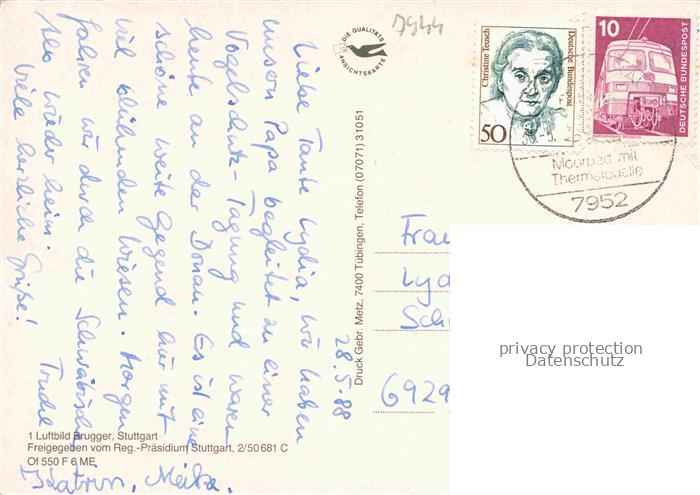 Liebe Tante Lydia, wir haben
unsern Papa begleitet zu einer
Vogelschutz-Tagung und waren
heute an der Donau. Es ist eine
schöne weite Gegend hier mit
viel blühenden Wiesen. Morgen
fahren wir durch die Schwäbische
Alb wieder heim.
Viele herzliche Grüße!
Trudel
Beatrix, Meike.
28.5.88
1 Luftbild Brugger, Stuttgart
Freigegeben vom Reg.-Präsidium Stuttgart, 2/50 681 C
Of 550 F 6 ME
Druck Gebr. Metz, 7400 Tübingen, Telefon (07071) 31051
DIE QUALITÄTS
ANSICHTSKARTE
7944
Christine Teusch
Deutsche Bundespost
50
10
DEUTSCHE BUNDESPOST
Moorbad mit
Thermalquelle
7952
Frau
Lyd
Sch
6929
privacy protection
Datenschutz